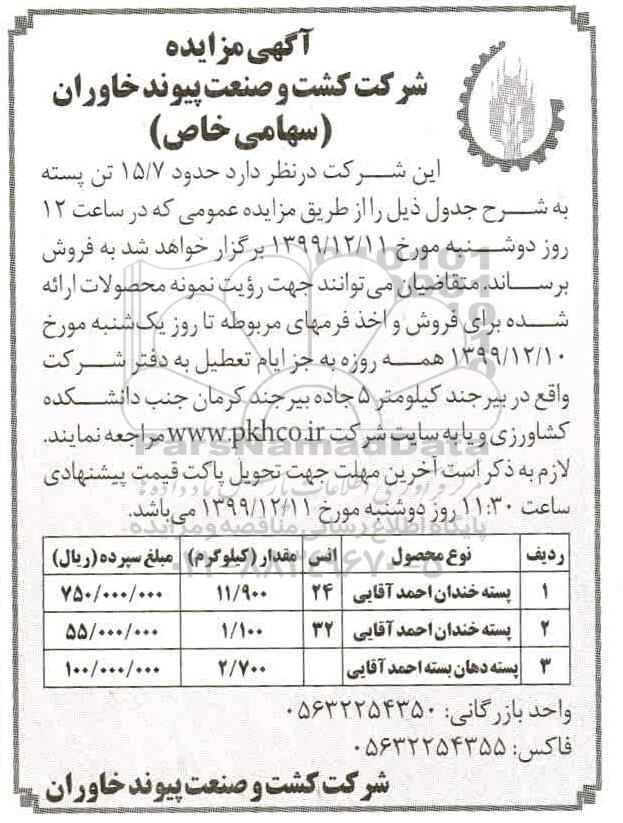 آگهی مزایده
شرکت کشت و صنعت پیوند خاوران
(سهامی خاص)
این شرکت درنظر دارد حدود ۱۵/۷ تن پسته
به شرح جدول ذیل را از طریق مزایده عمومی که در ساعت ۱۲
روز دوشنبه مورخ ۱۳۹۹/۱۲/۱۱ برگزار خواهد شد به فروش
برساند. متقاضیان می‌توانند جهت رؤیت نمونه محصولات ارائه
شده برای فروش و اخذ فرمهای مربوطه تا روز یک‌شنبه مورخ
۱۳۹۹/۱۲/۱۰ همه روزه به جز ایام تعطیل به دفتر شرکت
واقع در بیرجند کیلومتر ۵ جاده بیرجند کرمان جنب دانشکده
کشاورزی و یا به سایت شرکت www.pkhco.ir مراجعه نمایند.
لازم به ذکر است آخرین مهلت جهت تحویل پاکت قیمت پیشنهادی
ساعت ۱۱:۳۰ روز دوشنبه مورخ ۱۳۹۹/۱۲/۱۱ می‌باشد.
ردیف نوع محصول انس مقدار (کیلوگرم) مبلغ سپرده (ریال)
۱ پسته خندان احمد آقایی ۲۴ ۱۱/۹۰۰ ۷۵۰/۰۰۰/۰۰۰
۲ پسته خندان احمد آقایی ۳۲ ۱/۱۰۰ ۵۵/۰۰۰/۰۰۰
۳ پسته دهان بسته احمد آقایی ۲/۷۰۰ ۱۰۰/۰۰۰/۰۰۰
واحد بازرگانی: ۰۵۶۳۲۲۵۴۳۵۰
فاکس: ۰۵۶۳۲۲۵۴۳۵۵
شرکت کشت و صنعت پیوند خاوران
ParsNamadData
پایگاه اطلاع رسانی مناقصه و مزایده
۰۲۱-۸۸۳۴۹۶۷۰-۵